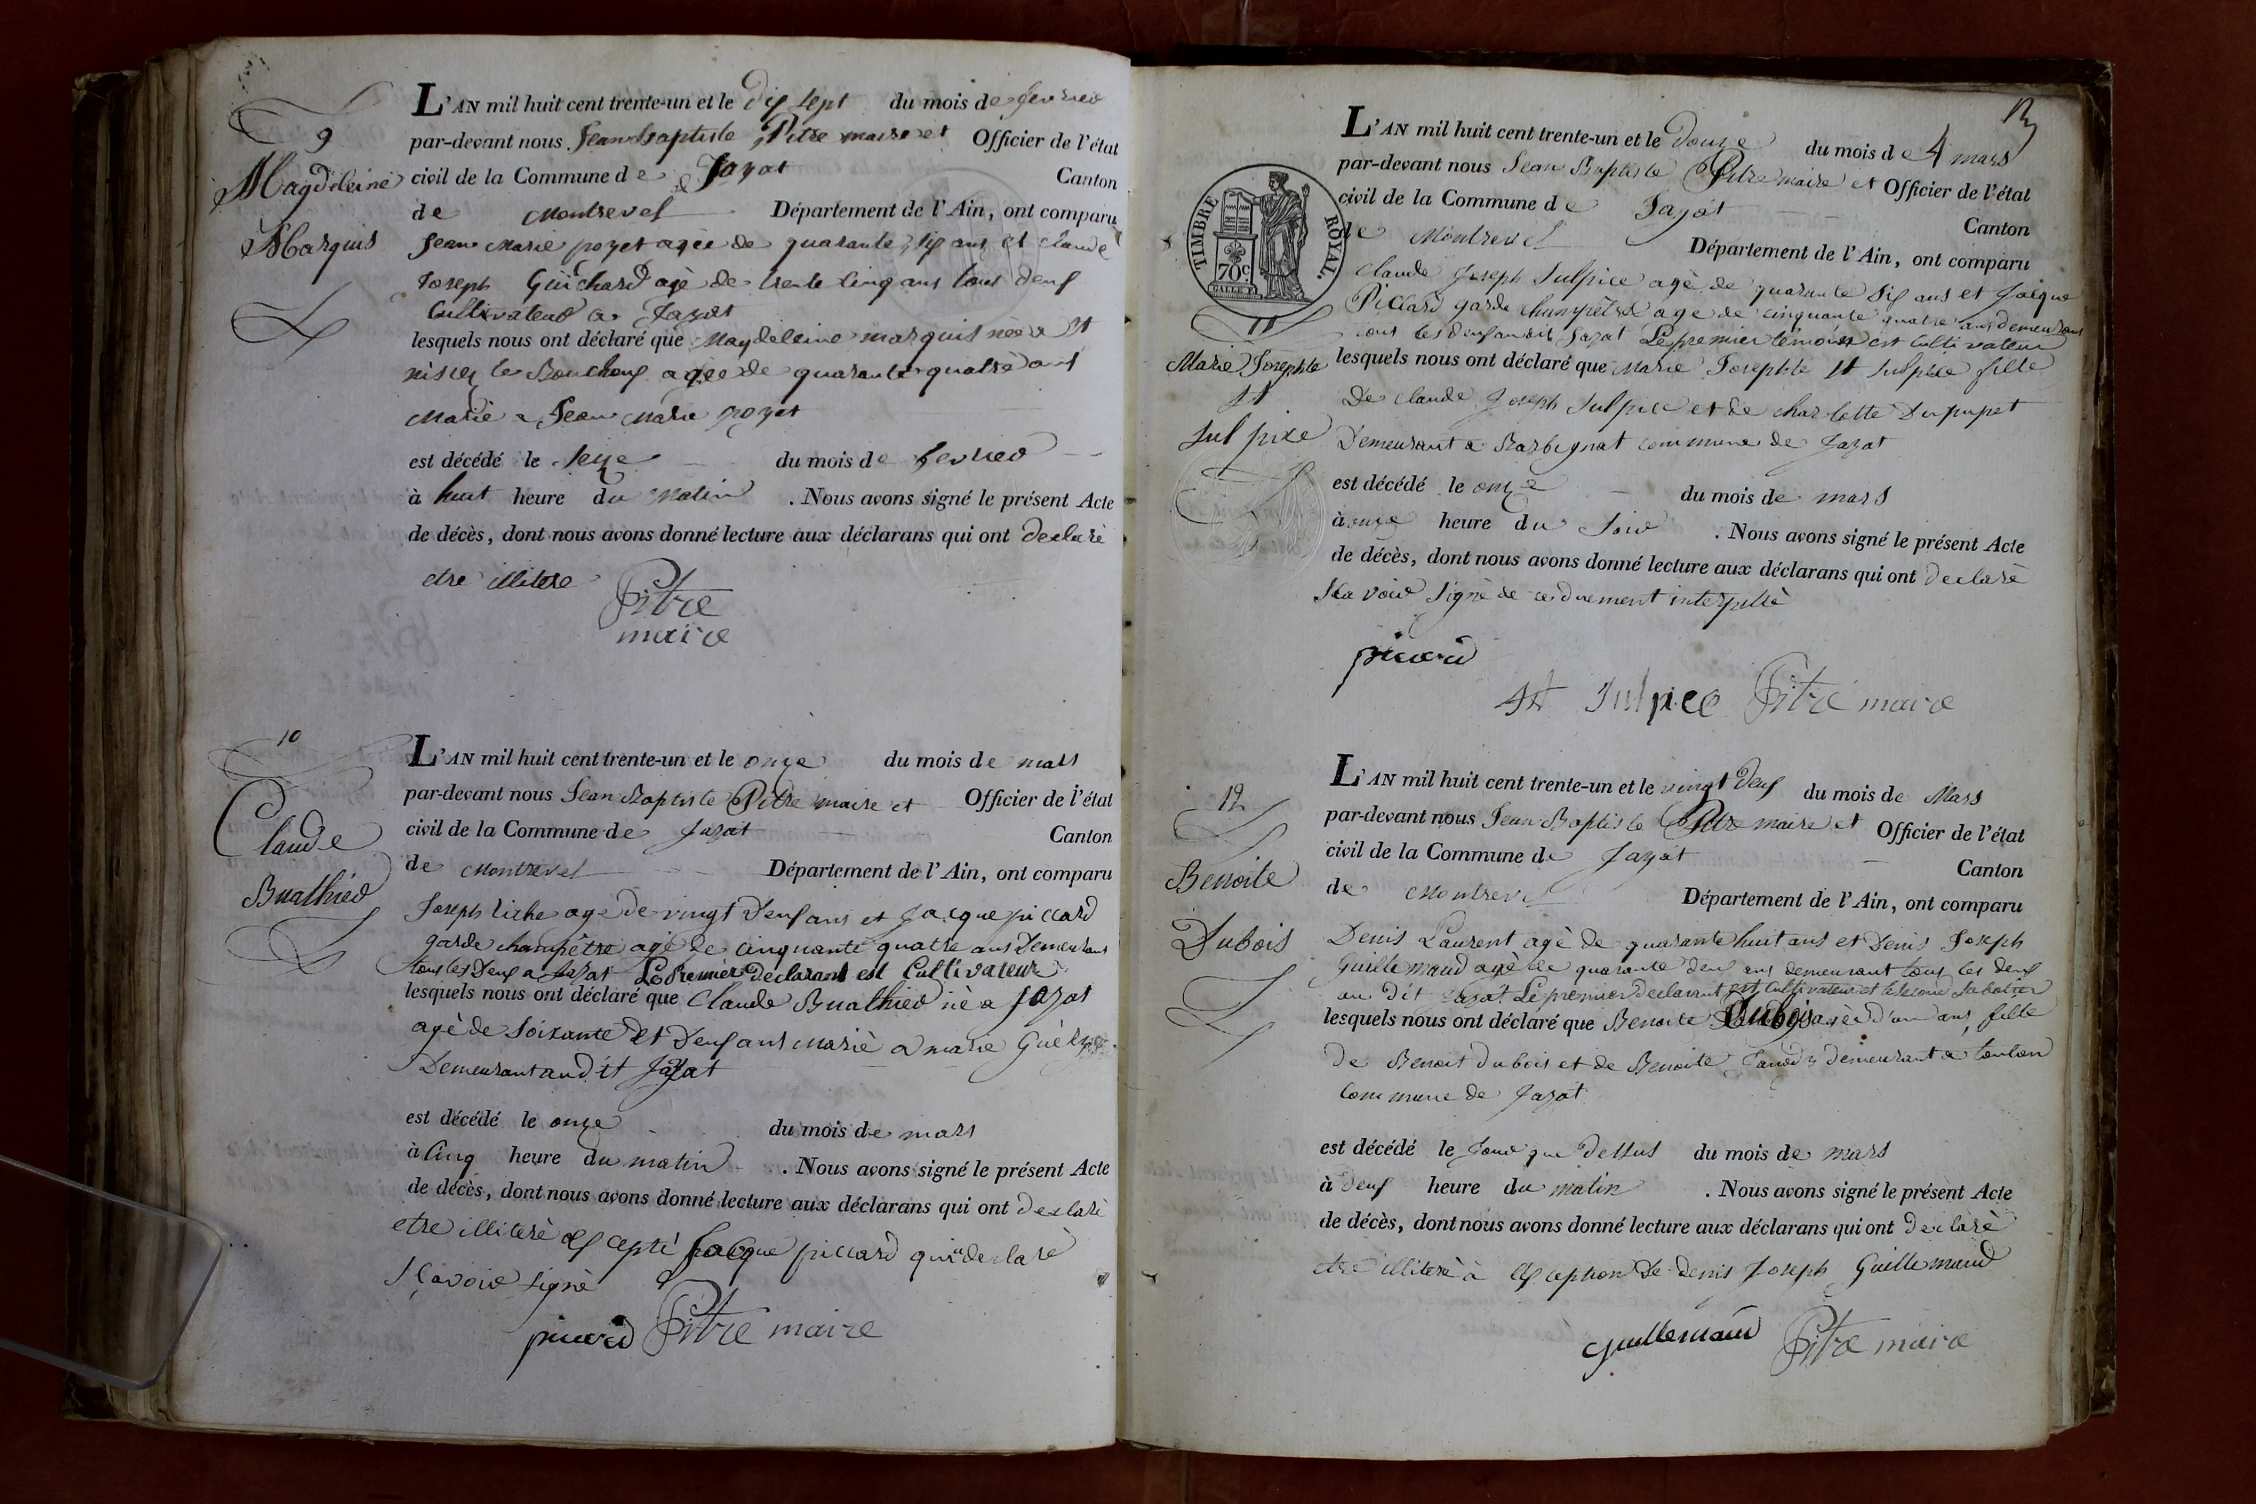 9
Magdeleine
Marquis
L'AN mil huit cent trente-un et le dix sept du mois de fevrier
par-devant nous Jean Baptiste Pitre maire et Officier de l'état
civil de la Commune de Jayat Canton
de Montrevel Département de l'Ain, ont comparu
Jean Marie poyet agée de quarante six ans et claude
Joseph Guichard agé de trente cinq ans tous deux
Cultivateur a Jayat
lesquels nous ont déclaré que Magdeleine marquis née a St
nisier le Bouchoux agée de quarante quatre ans
Marie a Jean Marie poyet
est décédé le seize du mois de fevrier
à huit heure du matin . Nous avons signé le présent Acte
de décès, dont nous avons donné lecture aux déclarans qui ont declaré
etre illitere
Pitre
maire
10
Claude
Buathier
L'AN mil huit cent trente-un et le onze du mois de mars
par-devant nous Jean Baptiste Pitre maire et Officier de l'état
civil de la Commune de Jayat Canton
de Montrevel Département de l'Ain, ont comparu
Joseph agé de vingt deux ans et Jacque piccard
garde champêtre agé de cinquante quatre ans Demeurans
tous les deux a Jayat Le Premier declarant est Cultivateur
lesquels nous ont déclaré que Claude Buathier né a Jayat
agé de soixante et deux ans Marié a marie
Demeurant audit Jayat
est décédé le onze du mois de mars
à cinq heure du matin . Nous avons signé le présent Acte
de décès, dont nous avons donné lecture aux déclarans qui ont declaré
etre illiteré excepté Jacque piccard qui a declaré
sçavoir signé
picard Pitre maire
12
TIMBRE ROYAL.
70c
11
Marie Josephte
St
Sulpice
L'AN mil huit cent trente-un et le douze du mois de mars
par-devant nous Jean Baptiste Pitre maire et Officier de l'état
civil de la Commune de Jayat Canton
de Montrevel Département de l'Ain, ont comparu
Claude Joseph Sulpice agé de quarante six ans et Jacque
Piccard garde champêtre agé de cinquante quatre ans demeurans
tous les deux audit Jayat Le premier témoin est cultivateur
lesquels nous ont déclaré que Marie Josephte St Sulpice fille
De claude Joseph Sulpice et de charlotte Dupupet
Demeurant a Barbignat commune de Jayat
est décédé le onze du mois de mars
à onze heure du soir . Nous avons signé le présent Acte
de décès, dont nous avons donné lecture aux déclarans qui ont declaré
scavoir signé de ce duement interpellé
picard
St Sulpice Pitre maire
12
Benoite
Dubois
L'AN mil huit cent trente-un et le vingt deux du mois de Mars
par-devant nous Jean Baptiste Pitre maire et Officier de l'état
civil de la Commune de Jayat Canton
de Montrevel Département de l'Ain, ont comparu
Denis Laurent agé de quarante huit ans et Denis Joseph
Guillemaud agé de quarante deux ans demeurant tous les deux
au dit Jayat Le premier declarant est Cultivateur et le second Sabotier
lesquels nous ont déclaré que Benoite Dubois agée d'un ans fille
de Benoit Dubois et de Benoite demeurant a
commune de Jayat
est décédé le Jour que dessus du mois de mars
à deux heure du matin . Nous avons signé le présent Acte
de décès, dont nous avons donné lecture aux déclarans qui ont declaré
etre illiteré à exception de denis Joseph Guillemaud
Guillemaud Pitre maire